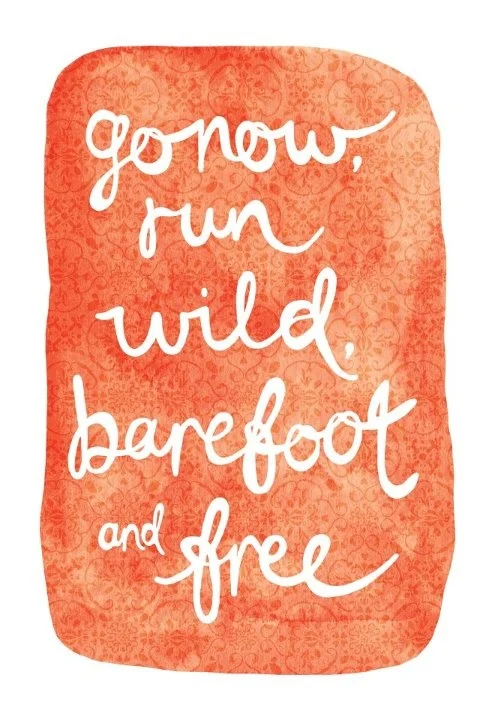 go now,
run
wild,
barefoot
and free